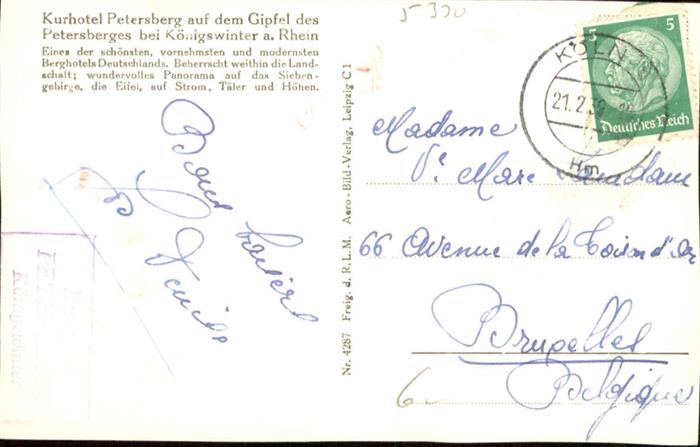 Kurhotel Petersberg auf dem Gipfel des
Petersberges bei Königswinter a. Rhein
Eines der schönsten, vornehmsten und modernsten
Berghotels Deutschlands. Beherrscht weithin die Land-
schaft; wundervolles Panorama auf das Sieben-
gebirge, die Eifel, auf Strom, Täler und Höhen.
Bons baisers
Denise
Königswinter
Nr. 4287 Freig. d. R.L.M. Aero-Bild-Verlag, Leipzig C 1
5 5
Deutsches Reich
KÖLN
21.2.39
Madame
Vve Marc
66 Avenue de la Toison d'Or
Bruxelles
Belgique
6